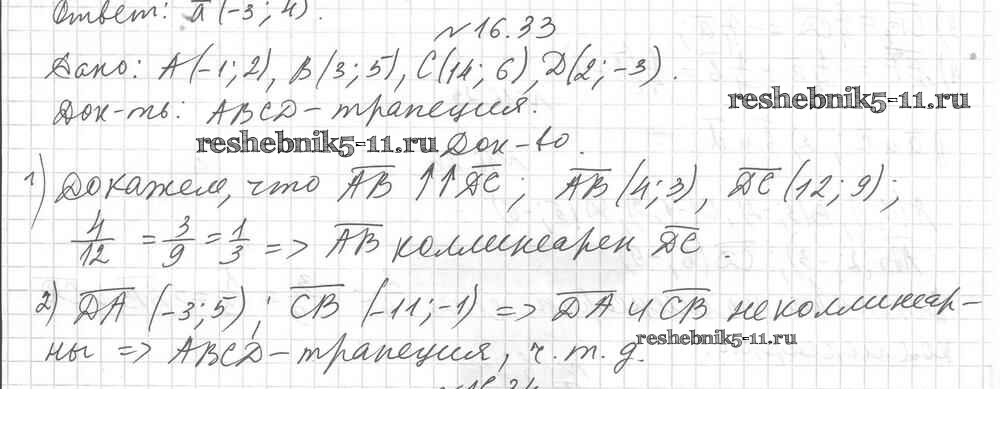 Ответ: a̅ (-3; 4).
№16.33
Дано: A(-1; 2), B(3; 5), C(14; 6), D(2; -3).
Док-ть: ABCD - трапеция.
reshebnik5-11.ru
reshebnik5-11.ru
Док-во.
1) Докажем, что A̅B̅ ↑↑ D̅C̅; A̅B̅ (4; 3), D̅C̅ (12; 9);
4/12 = 3/9 = 1/3 => A̅B̅ коллинеарен D̅C̅.
2) D̅A̅ (-3; 5); C̅B̅ (-11; -1) => D̅A̅ и C̅B̅ не коллинеар-
ны => ABCD - трапеция, ч. т. д.
reshebnik5-11.ru